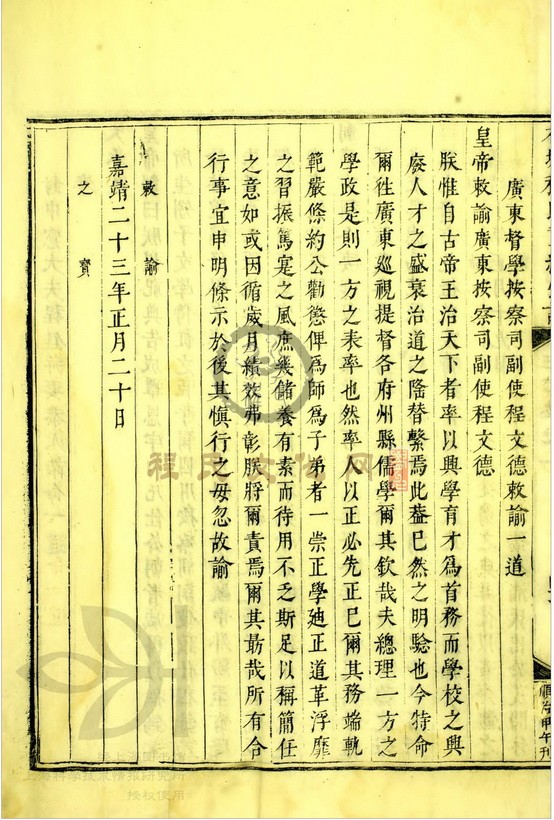 廣東督學按察司副使程文德敕諭一道
皇帝敕諭廣東按察司副使程文德
朕惟自古帝王治天下者率以興學育才為首務而學校之興
廢人才之盛衰治道之隆替繫焉此葢已然之明驗也今特命
爾徃廣東廵視提督各府州縣儒學爾其欽哉夫總理一方之
學政是則一方之表率也然率人以正必先正已爾其務端軌
範嚴條約公勸懲俾為師為子弟者一崇正學廸正道革浮靡
之習振篤寔之風庶幾儲養有素而待用不乏斯足以稱簡任
之意如或因循歲月績效弗彰朕將爾責焉爾其朂哉所有合
行事宜申明條示於後其慎行之毋忽故諭
嘉靖二十三年正月二十日
敕諭
之寳
順治甲午刊
程氏文化网
授权使用